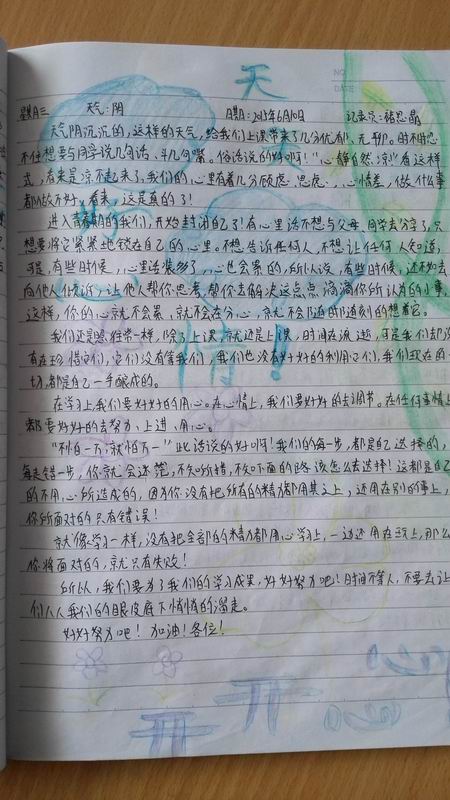 天
星期三 天气:阴 日期:2015年6月10日 记录员:
天气阴沉沉的,这样的天气,给我们上课带来了几分忧郁、无聊。时不时忍
不住想要与同学说几句话、斗几句嘴。俗话说的好啊!“心静自然凉”看这样
式,看来是凉不起来了,我们的心里有着几分顾虑、思虑,心情差,做什么事
都做不好,看来,这是真的了!
进入青春期的我们,开始封闭自己了!有心里话不想与父母、同学去分享了,只
想要将它紧紧地锁在自己的心里。不想告诉任何人,不想让任何人知道,
可是,有些时候,心里话装多了,心也会累的,所以说,有些时候,还不如去
向他人倾诉,让他人帮你思考,帮你去解决这点点滴滴你所认为的小事,
这样,你的心就不会累,就不会在分心,就不会随时随刻的想着它。
我们还是照往常一样,除了上课,就还是上课,时间在流逝,可是我们却没
有在珍惜它们,它们没有等我们,我们也没有好好的利用它们,我们现在的一
切,都是自己一手酿成的。
在学习上,我们要好好的用心。在心情上,我们要好好的去调节。在任何事情上
都要好好的去努力、上进、用心。
“不怕一万,就怕万一”此话说的好啊!我们的每一步,都是自己选择的,
每走错一步,你就会迷茫,不知所措,不知下面的路该怎么去选择!这都是自己
的不用心所造成的,因为你没有把所有的精力都用其之上,还用在别的事上,
你所面对的只有错误!
就像学习一样,没有把全部的精力都用心学习上,一边还用在玩上,那么
你将面对的,就只有失败!
所以,我们要为了我们的学习成果,好好努力吧!时间不等人,不要去让
们从我们的眼皮底下悄悄的溜走。
好好努力吧!加油!各位!